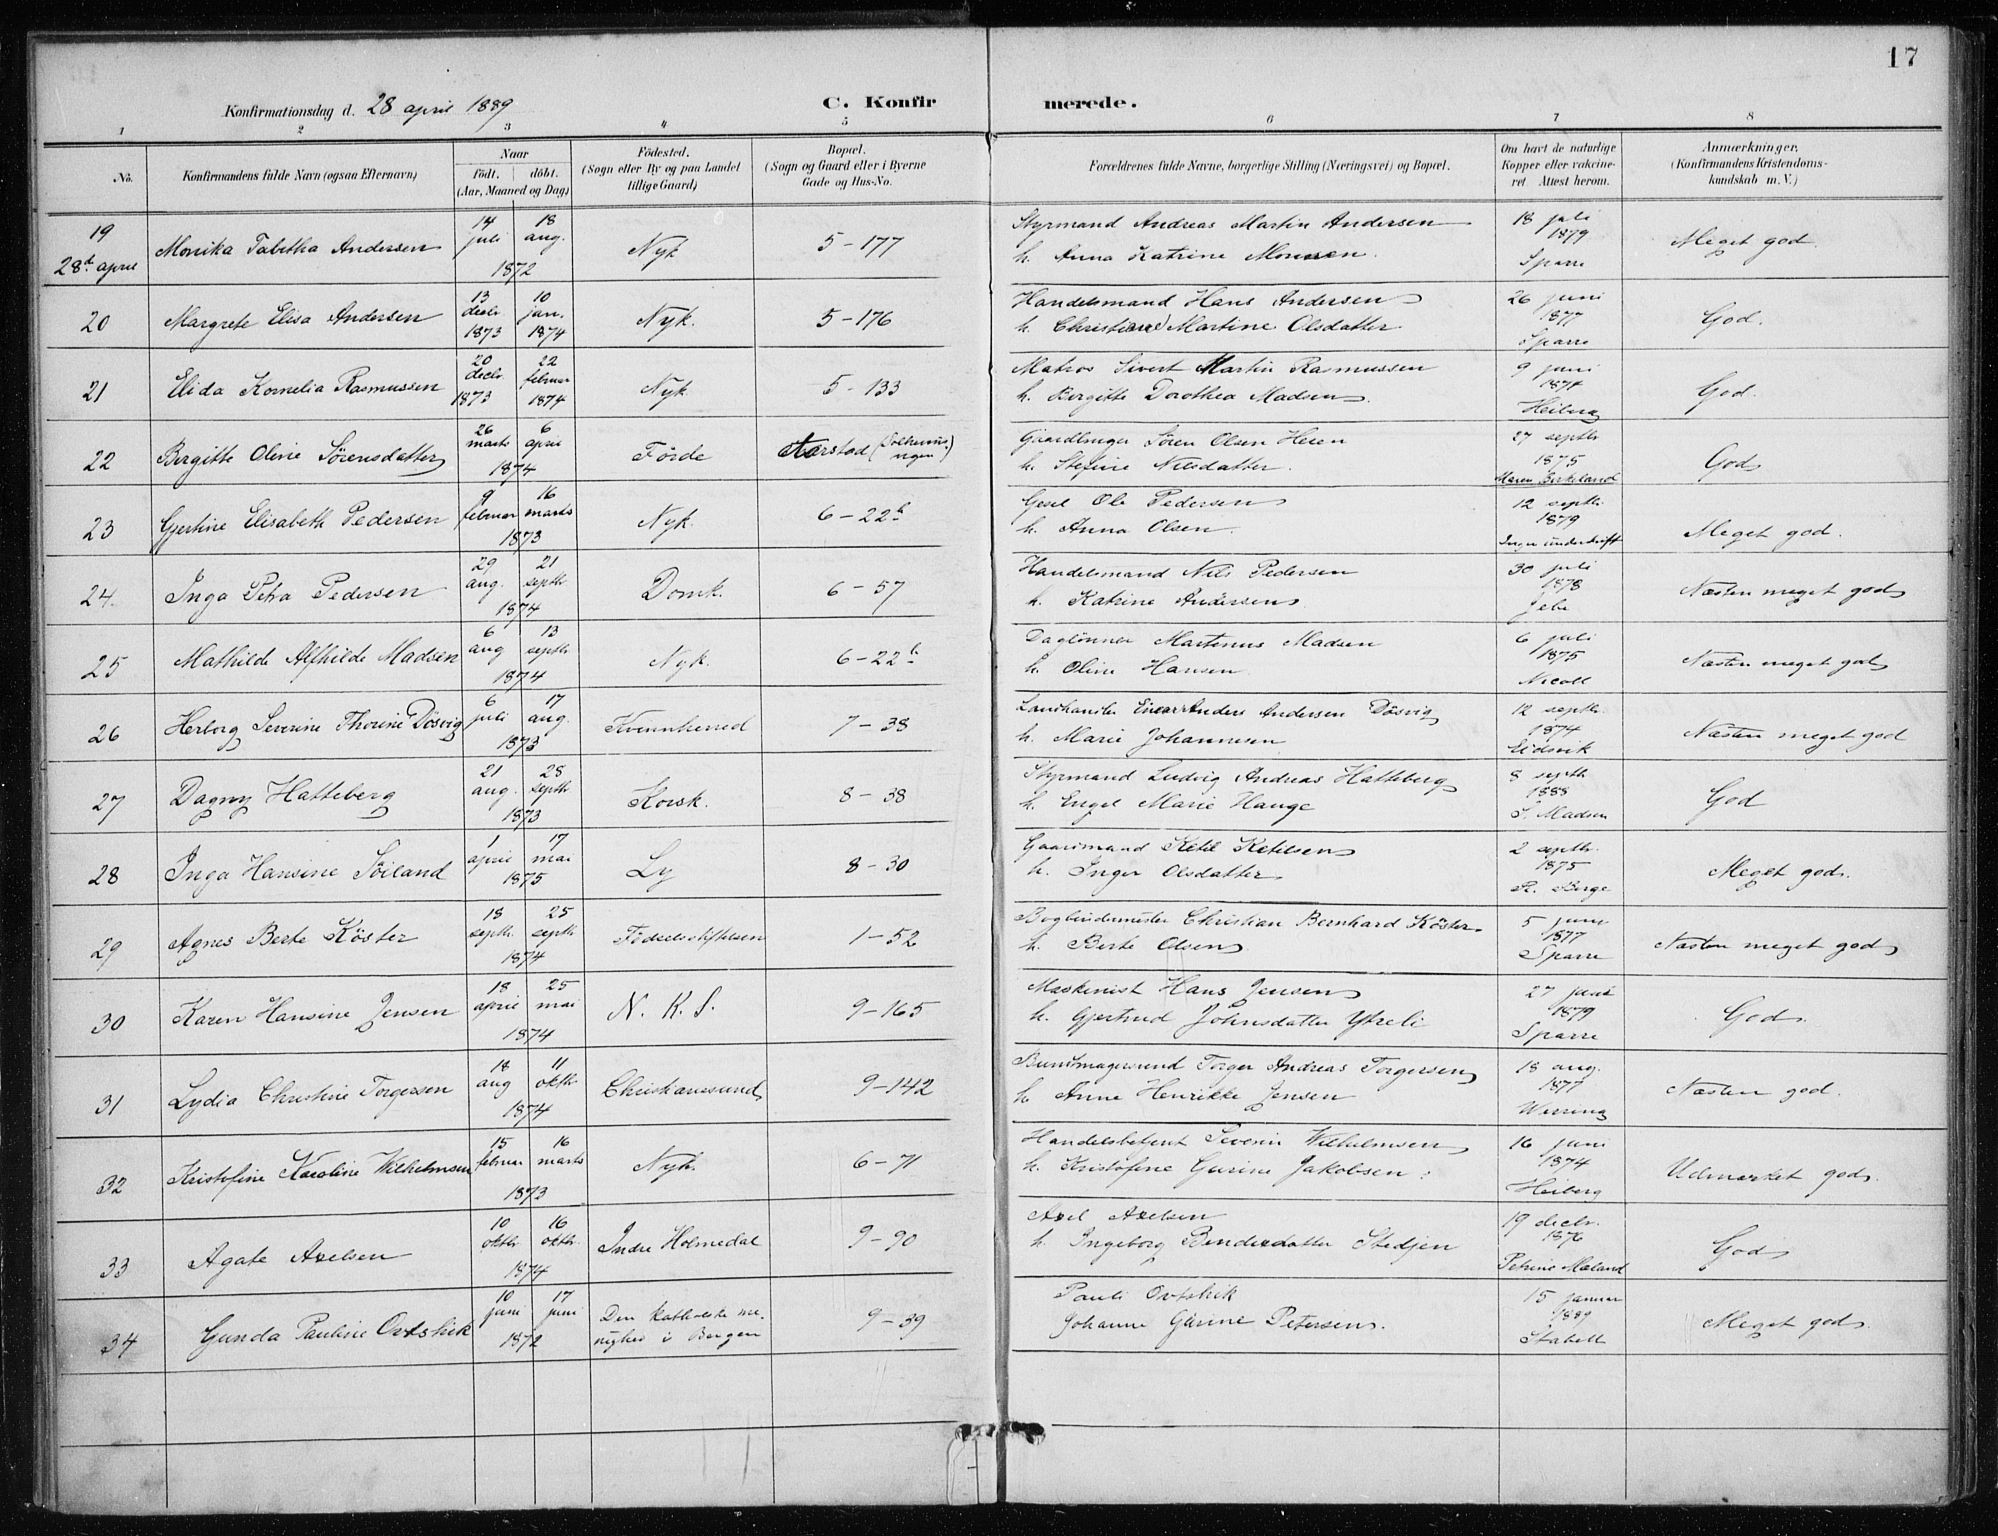 17
Konfirmationsdag d. 28 april 1889 C. Konfirmerede.
1 2 3 4 5 6 7 8
No. Konfirmandens fulde Navn (ogsaa Efternavn) Naar födt. döbt. (Aar, Maaned og Dag) Födested. (Sogn eller By og paa Landet tillige Gaard) Bopæl. (Sogn og Gaard eller i Byerne Gade og Hus-No. Forældrenes fulde Navne, borgerlige Stilling (Næringsvei) og Bopæl. Om havt de naturlige Kopper eller vakcineret Attest herom. Anmærkninger. (Konfirmandens Kristendomskundskab m. V.)
19 28d april Monika Tabitha Andersen 14 juli 18 aug. 1872 Nyk 5-177 Styrmand Andreas Martin Andersen 18 juli 1879 Meget god
h. Anna Katrine Monsen. Sparre
20 Margrete Elisa Andersen 13 decbr. 1873 10 jan. 1874 Nyk. 5-176 Handelsmand Hans Andersen 26 juni 1877 God.
h. Christine Martine Olsdatter. Sparre
21 Elida Kornelia Rasmussen 20 decbr. 1873 22 februar 1874 Nyk. 5-133 Matros Sivert Martin Rasmussen 9 juni 1874 God.
h. Bergitte Dorothea Madsen. Heiberg
22 Bergitte Oline Sörensdatter 26 marts 6 april 1874 Förde Aarstad Gaardbruger Sören Olsen 27 septbr. 1875 God
h. Stefine Nilsdatter. Maren Birkeland
23 Gjertine Elisabeth Pedersen 9 februar 16 marts 1873 Nyk. 6-22b Gesel Ole Pedersen 12 septbr. 1879 Meget god.
h. Anna Olsen Ingen underskrift
24. Inga Petra Pedersen 29 aug. 21 septbr 1874 Domk. 6-57 Handelsmand Nils Pedersen 30 juli 1878 Næsten meget god
h. Katrine Andersen Jebe
25 Mathilde Alfhilde Madsen 6 aug 13 septbr 1874 Nyk. 6-22b Daglönner Martinus Madsen 6 juli 1875 Næsten meget god
h. Oline Hansen Nicoll
26 Herborg Severine Thorine Dösvig 6 juli 17 aug. 1873 Kvinnherred 7-38 Landhandler Anders Andersen Dösvig 12 septbr. 1874 Næsten meget god
h. Marie Johannesen Eidsvik
27 Dagny Hatteberg 21 aug. 28 septbr 1873 Korsk. 8-38 Styrmand Ludvig Andreas Hatteberg 8 septbr 1888 God
h. Engel Marie Hauge S. Madsen
28 Inga Hansine Söiland 1 april 17 mai 1875 Ly 8-30 Gaardmand Ketil Ketilsen 2 septbr. 1875 Meget god.
h. Inger Olsdatter R. Berge
29 Agnes Berte Köster 18 septbr. 25 septbr 1874 Födselsstiftelsen 1-52 Bogbindermester Christian Bernhard Köster. 5 juni 1877 Næsten meget god
h. Berte Olsen Sparre
30 Karen Hansine Jensen 18 april 25 mai 1874 N. K. S. 9-165 Maskinist Hans Jensen 27 juni 1879 God
h. Gjertrud Johnsdatter Ytreli Sparre
31 Lydia Christine Torgersen 18 aug 11 oktbr 1874 Christianssund 9-142 Buntmagersvend Torger Andreas Torgersen 18 aug. 1877 Næsten god.
h. Anne Henrikke Jensen Werring
32 Kristofine Karoline Wilhelmsen 15 februar 16 marts 1873 Nyk. 6-71 Handelsbetjent Severin Wilhelmsen 16 juni 1874 Udmærket god.
h. Kristofine Gurine Jakobsen. Heiberg
33 Agate Axelsen 10 oktbr 16 oktbr. 1874 Indre Holmedal 9-90 Axel Axelsen 19 decbr. 1876 God
h. Ingeborg Bendixdatter Stedjen Petrine Mæland
34 Gunda Pauline Ovtshik 10 juni 17 juni 1872 Den katholske menighed i Bergen 9-39 Pauli Ovtshik 15 januar 1889 Meget god.
Johanne Gurine Petersen. Stabell